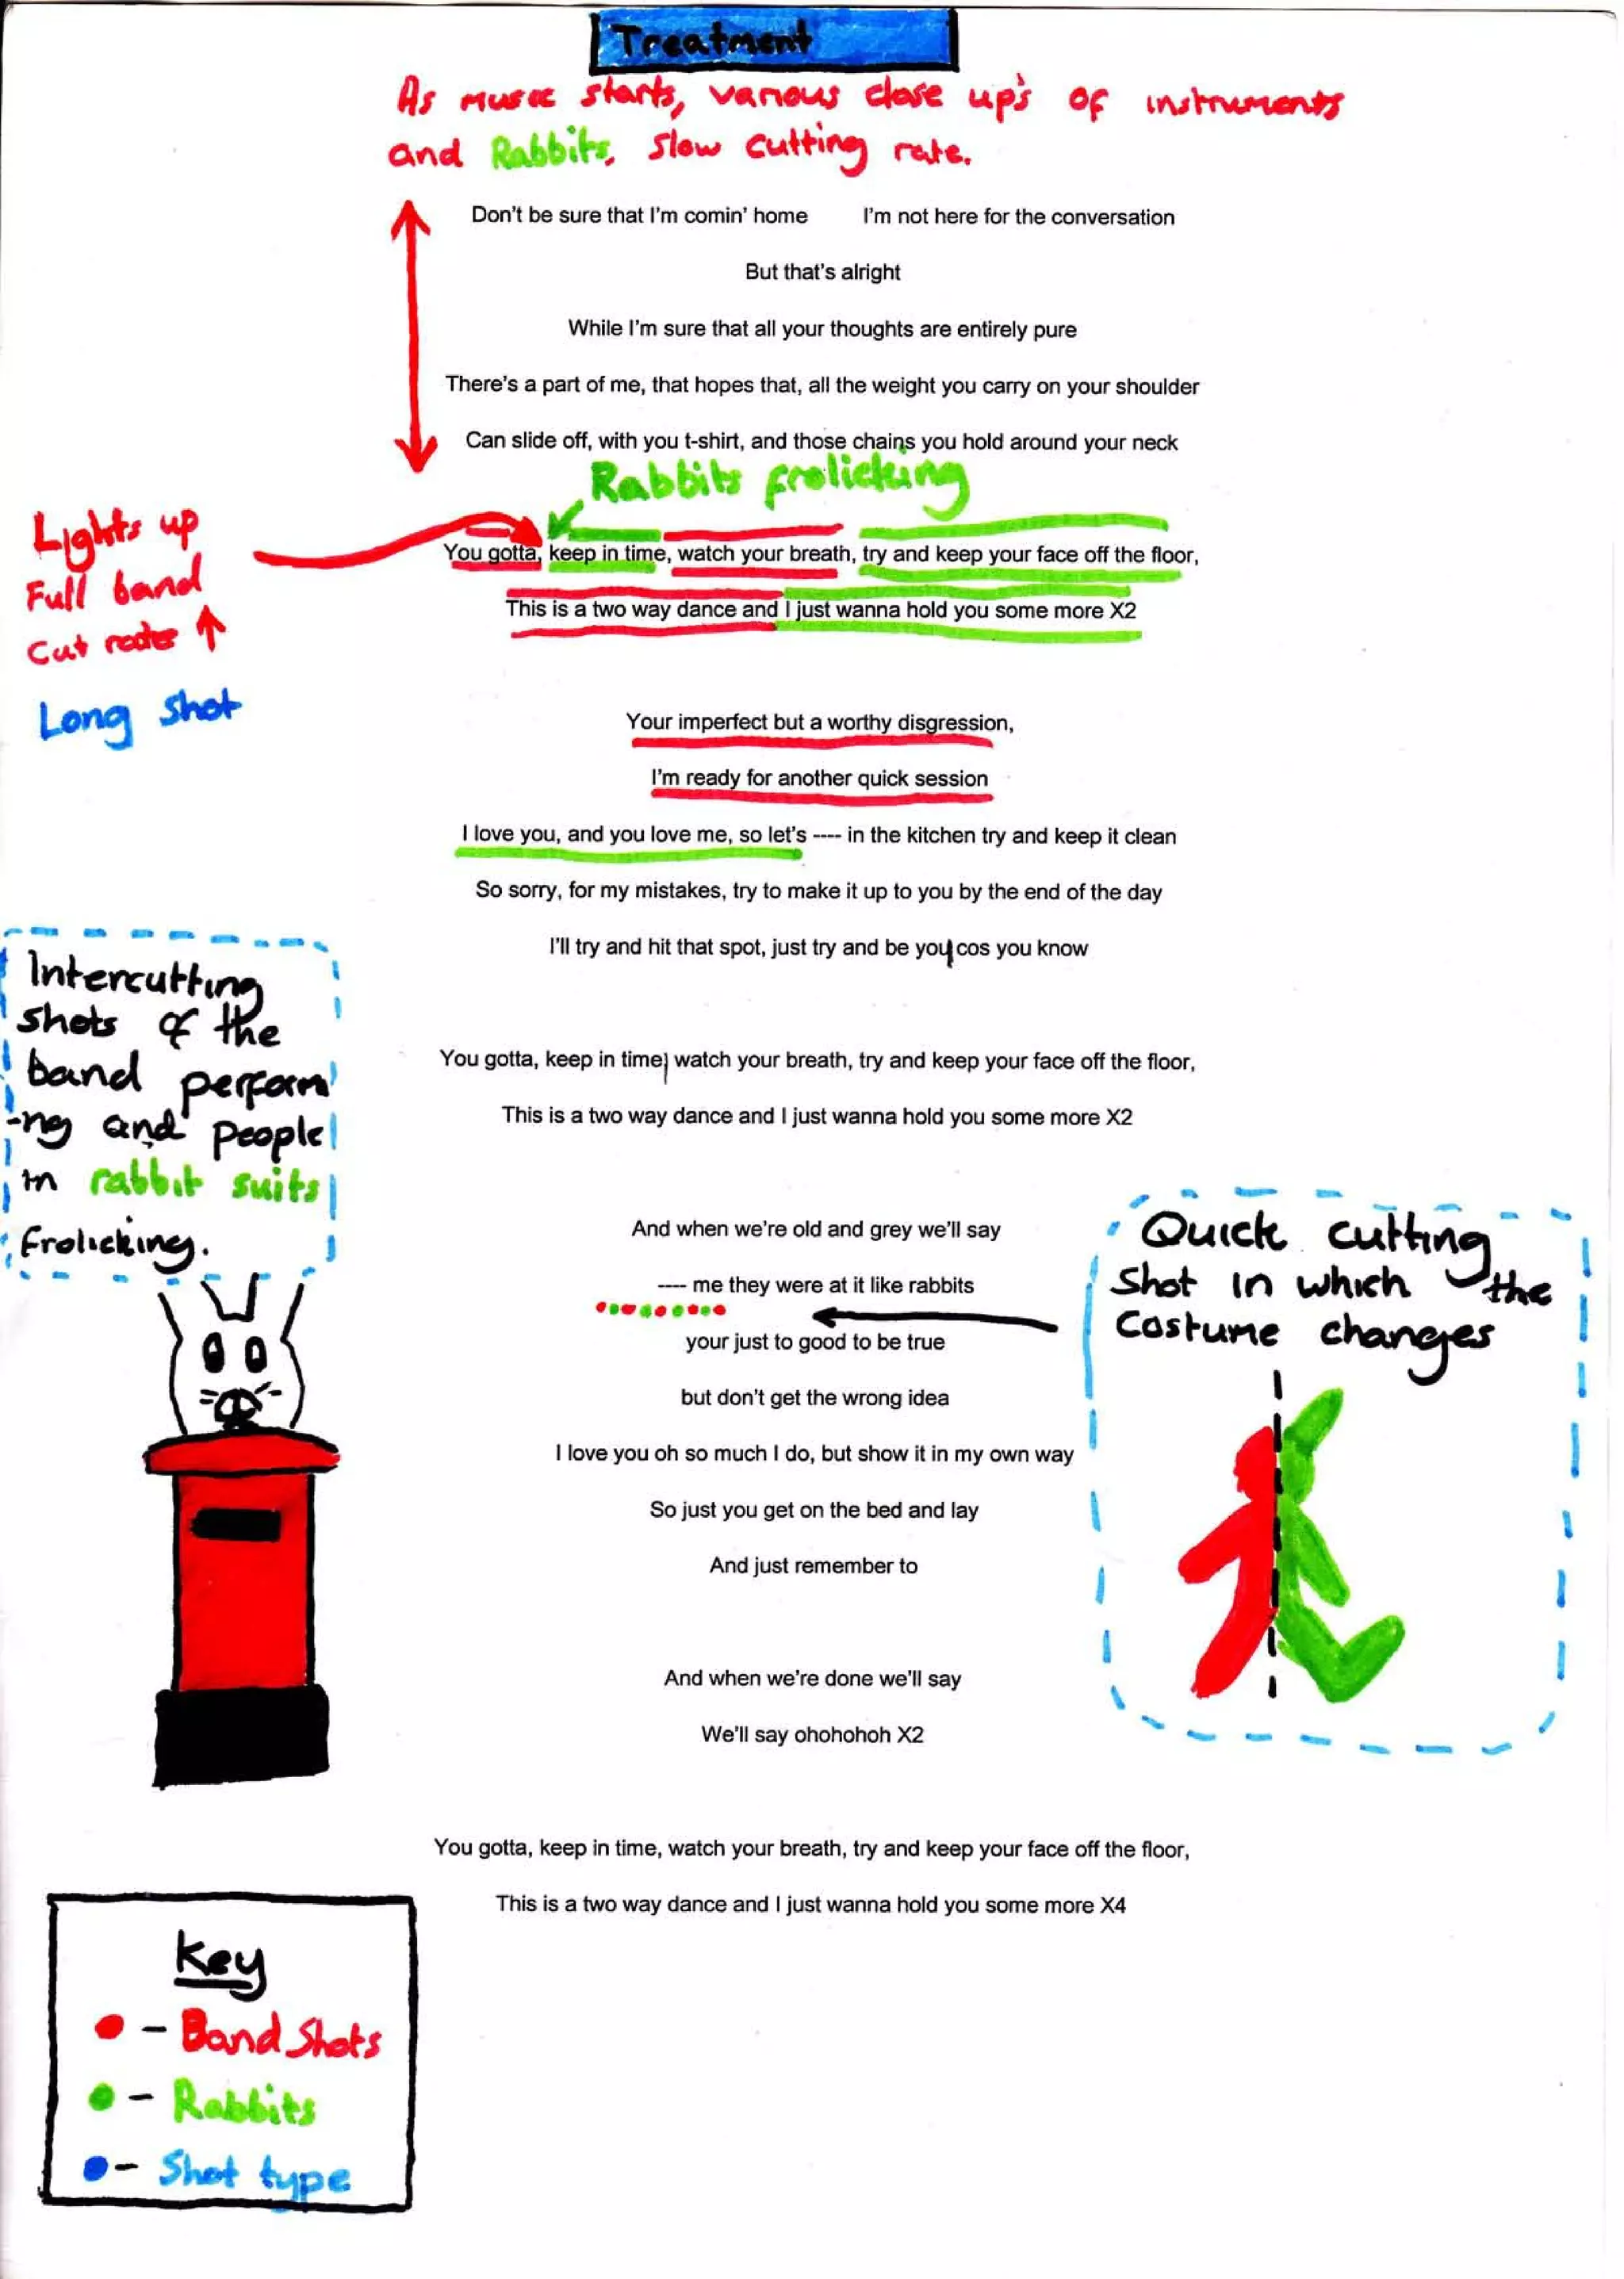 Treatment
As music starts, various close up's of instruments
and Rabbits, slow cutting rate.
Don't be sure that I'm comin' home I'm not here for the conversation
But that's alright
While I'm sure that all your thoughts are entirely pure
There's a part of me, that hopes that, all the weight you carry on your shoulder
Can slide off, with you t-shirt, and those chains you hold around your neck
Rabbits frolicking
Lights up
Full band
Cut rate ↑
Long shot
You gotta, keep in time, watch your breath, try and keep your face off the floor,
This is a two way dance and I just wanna hold you some more X2
Your imperfect but a worthy disgression,
I'm ready for another quick session
I love you, and you love me, so let's ---- in the kitchen try and keep it clean
So sorry, for my mistakes, try to make it up to you by the end of the day
I'll try and hit that spot, just try and be you, cos you know
Intercutting
shots of the
band perform
-ng and people
in rabbit suits
frolicking.
You gotta, keep in time, watch your breath, try and keep your face off the floor,
This is a two way dance and I just wanna hold you some more X2
And when we're old and grey we'll say
---- me they were at it like rabbits
your just to good to be true
but don't get the wrong idea
I love you oh so much I do, but show it in my own way
So just you get on the bed and lay
And just remember to
Quick cutting
shot in which the
costume changes
And when we're done we'll say
We'll say ohohohoh X2
You gotta, keep in time, watch your breath, try and keep your face off the floor,
This is a two way dance and I just wanna hold you some more X4
Key
- Band Shots
- Rabbits
- Shot type